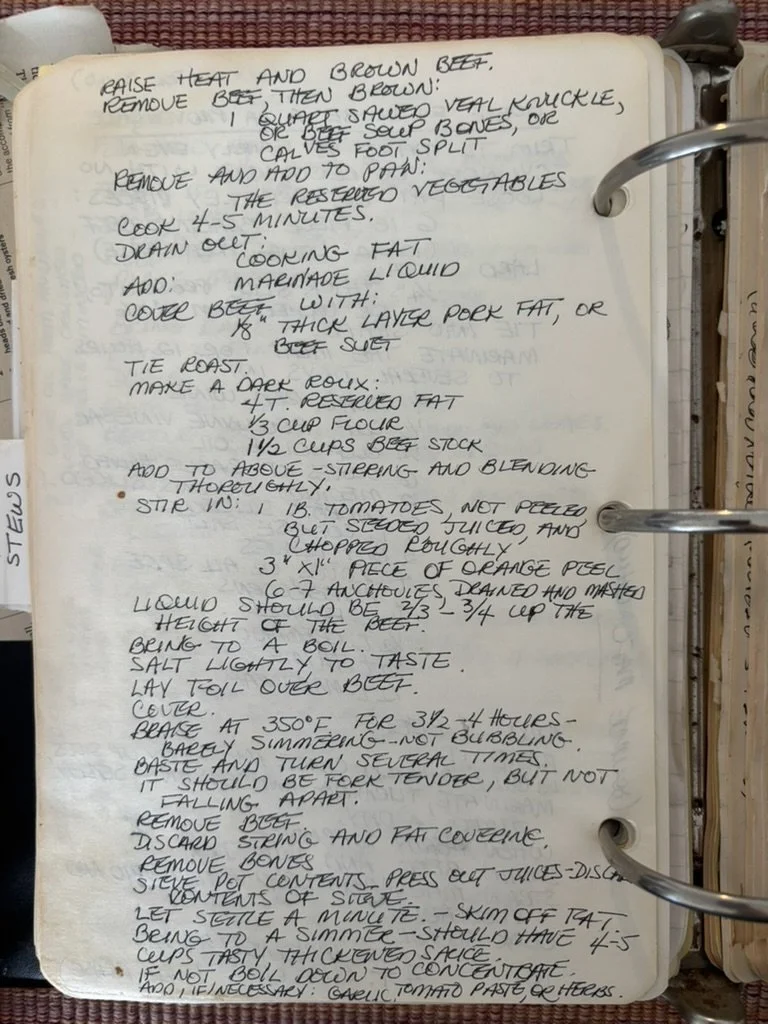 RAISE HEAT AND BROWN BEEF.
REMOVE BEEF, THEN BROWN:
1 QUART SAWED VEAL KNUCKLE,
OR BEEF SOUP BONES, OR
CALVES FOOT SPLIT
REMOVE AND ADD TO PAN:
THE RESERVED VEGETABLES
COOK 4-5 MINUTES.
DRAIN OUT:
COOKING FAT
ADD: MARINADE LIQUID
COVER BEEF WITH:
1/8" THICK LAYER PORK FAT, OR
BEEF SUET
TIE ROAST.
MAKE A DARK ROUX:
4 T. RESERVED FAT
1/3 CUP FLOUR
1 1/2 CUPS BEEF STOCK
ADD TO ABOVE - STIRRING AND BLENDING
THOROUGHLY.
STIR IN: 1 lB. TOMATOES, NOT PEELED
BUT SEEDED, JUICED, AND
CHOPPED ROUGHLY
3" X 1" PIECE OF ORANGE PEEL
6-7 ANCHOVIES, DRAINED AND MASHED
LIQUID SHOULD BE 2/3 - 3/4 UP THE
HEIGHT OF THE BEEF.
BRING TO A BOIL.
SALT LIGHTLY TO TASTE.
LAY FOIL OVER BEEF.
COVER.
BRAISE AT 350°F FOR 3 1/2 - 4 HOURS -
BARELY SIMMERING - NOT BUBBLING.
BASTE AND TURN SEVERAL TIMES.
IT SHOULD BE FORK TENDER, BUT NOT
FALLING APART.
REMOVE BEEF.
DISCARD STRING AND FAT COVERING.
REMOVE BONES
SIEVE POT CONTENTS - PRESS OUT JUICES - DISCARD
CONTENTS OF SIEVE.
LET SETTLE A MINUTE. - SKIM OFF FAT
BRING TO A SIMMER - SHOULD HAVE 4-5
CUPS TASTY, THICKENED SAUCE.
IF NOT BOIL DOWN TO CONCENTRATE.
ADD, IF NECESSARY: GARLIC, TOMATO PASTE, OR HERBS.
STEWS